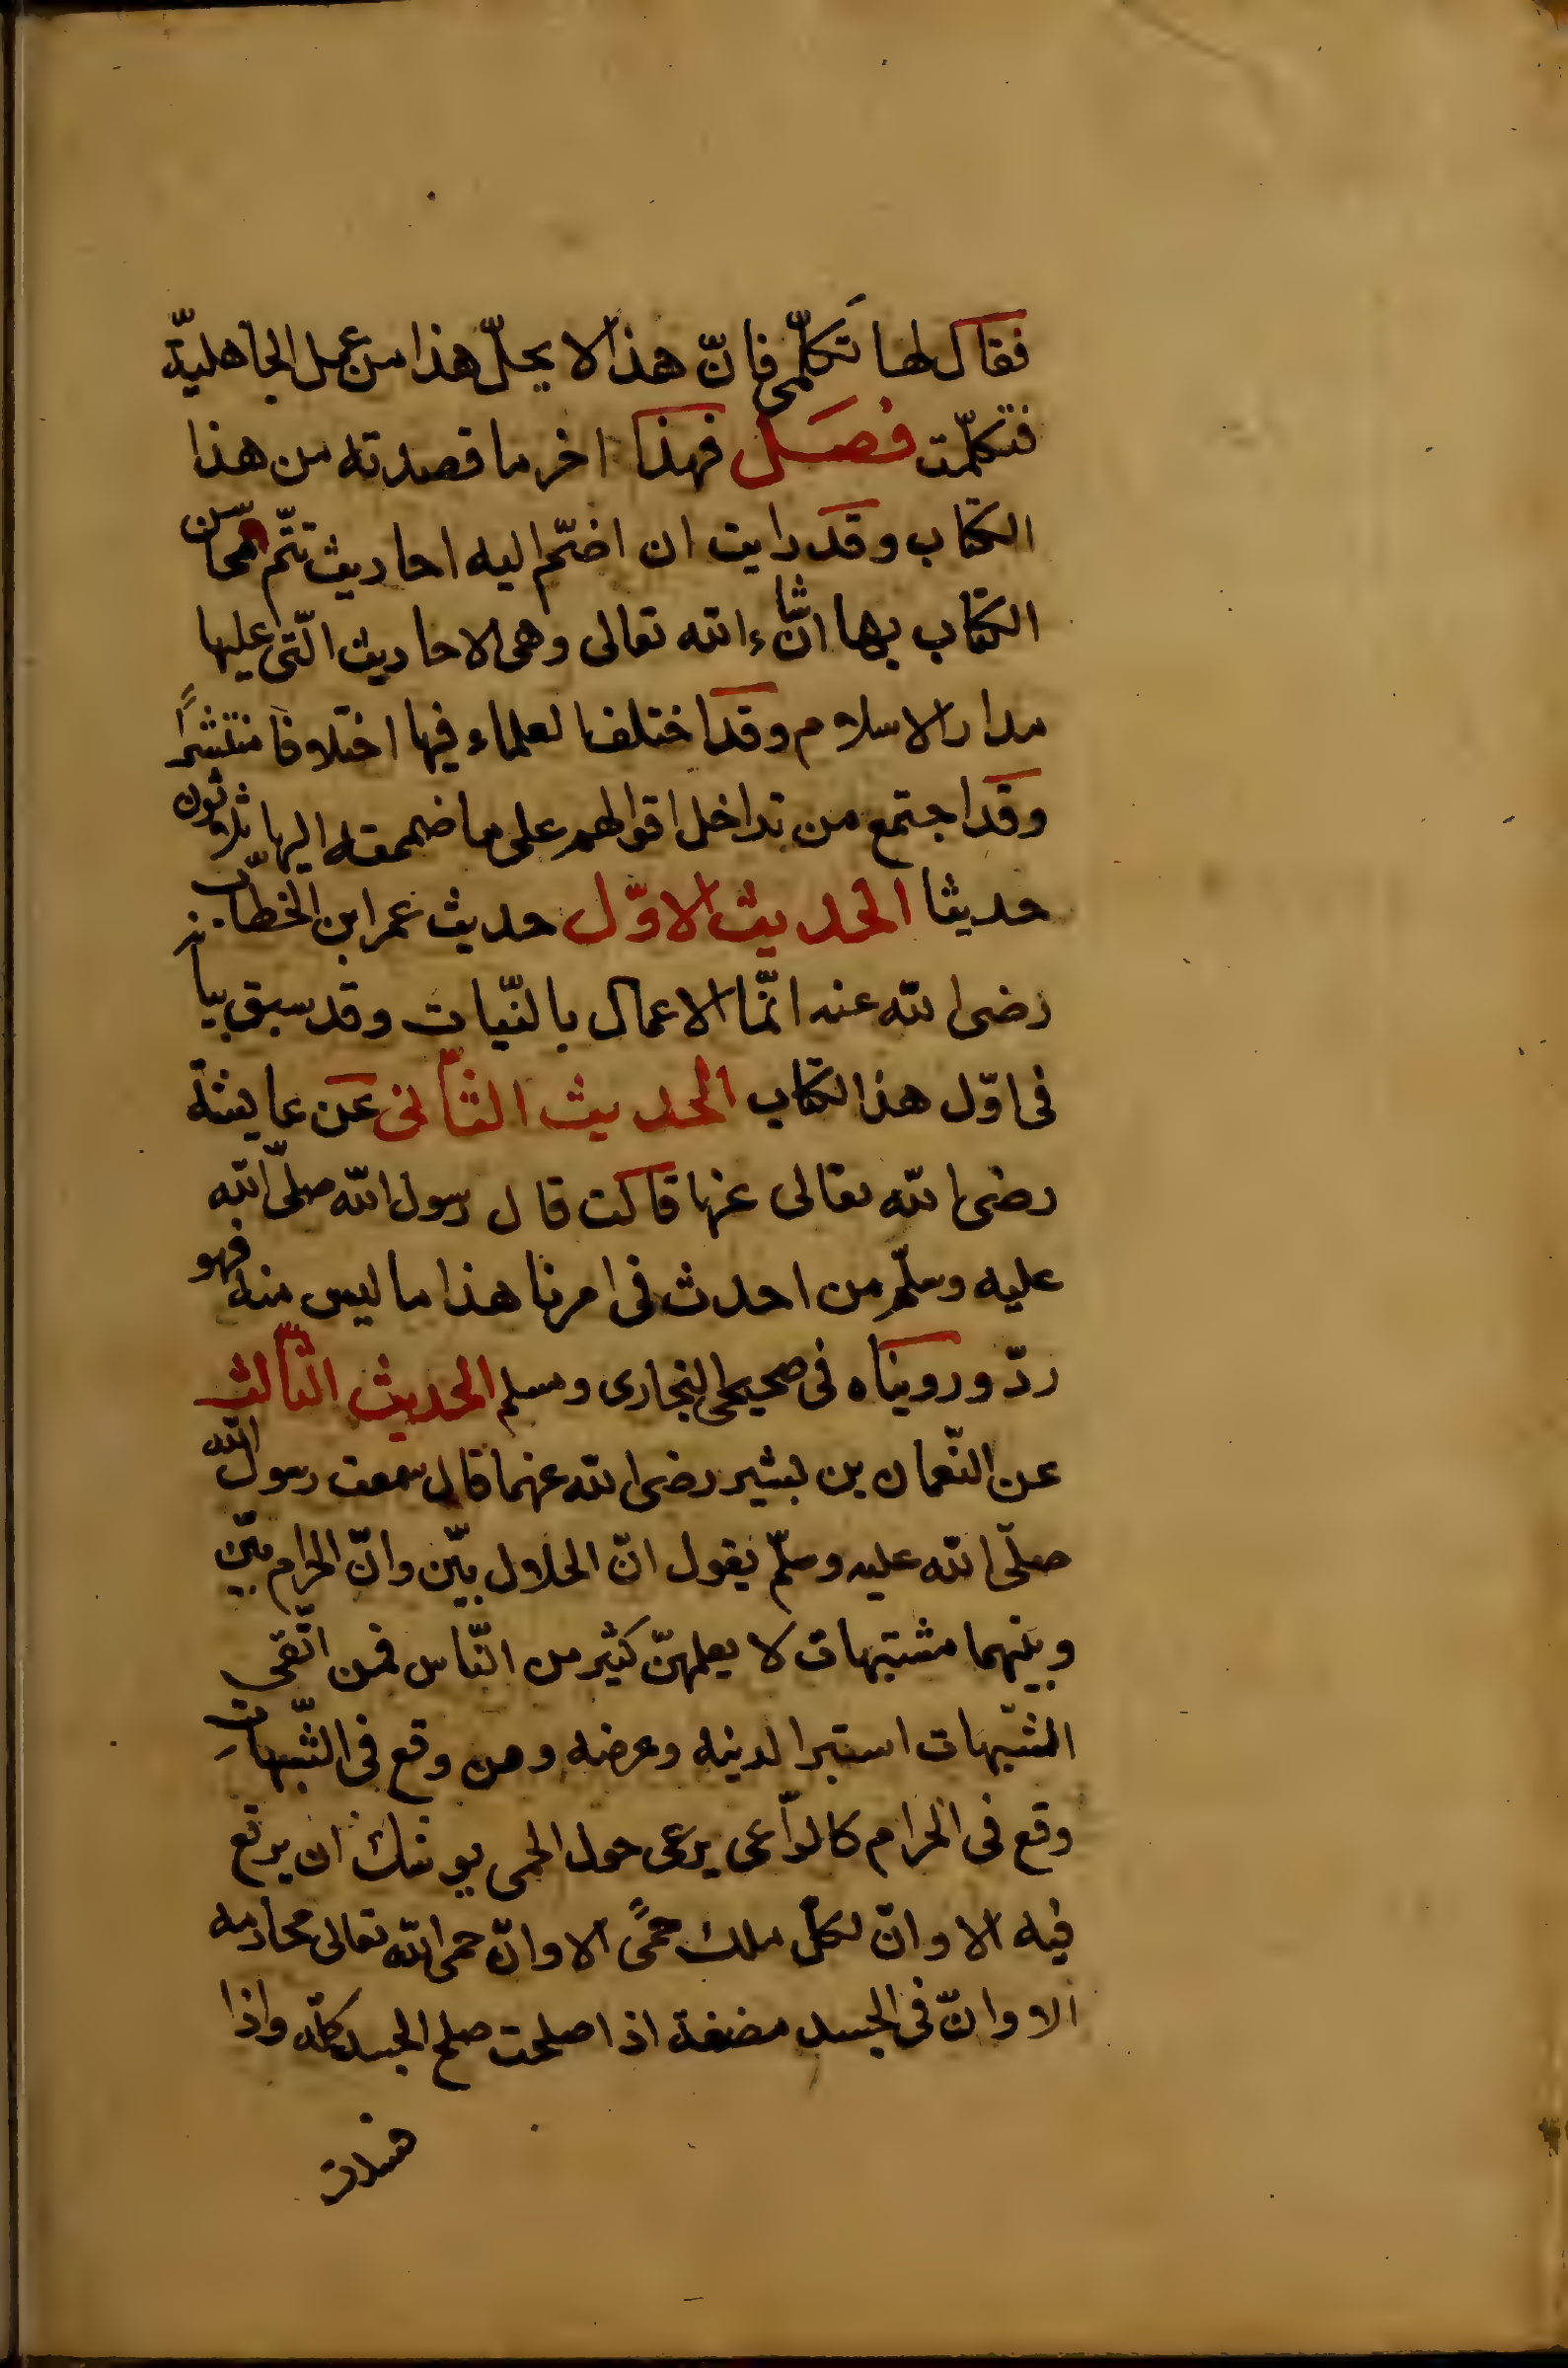 فقال لها تكلّمى فانّ هذا لا يحلّ هذا من عمل الجاهليّة
فتكلّمت فصل فهذا اخر ما قصدته من هذا
الكتاب وقد رايت ان اضمّ اليه احاديث تتمّ محاسن
الكتاب بها ان شاء الله تعالى وهى الاحاديث الّتى عليها
مدار الاسلام وقد اختلف العلماء فيها اختلافا منتشرًا
وقد اجتمع من تداخل اقوالهم على ما ضممته اليها ثلاثون
حديثا الحديث الاوّل حديث عمر ابن الخطّاب
رضى الله عنه انّما الاعمال بالنّيات وقد سبق بيا
فى اوّل هذا الكتاب الحديث الثّانى عن عايشة
رضى الله تعالى عنها قالت قال رسول الله صلّى الله
عليه وسلّم من احدث فى امرنا هذا ما ليس منه فهو
ردّ وروينَاه فى صحيحى البخارى ومسلم الحديث الثّالث
عن النّعمان بن بشير رضى الله عنهما قال سمعت رسول الله
صلّى الله عليه وسلّم يقول انّ الحلال بيّن وانّ الحرام بيّن
وبينهما مشتبهات لا يعلمهنّ كثير من النّاس فمن اتّقى
الشّبهات استبرا لدينه وعرضه ومن وقع فى الشّبهات
وقع فى الحرام كالرّاعى يرعى حول الحمى يوشك ان يرتع
فيه الا وانّ لكلّ ملك حمًى الا وانّ حمى الله تعالى محارمه
الا وانّ فى الجسد مضغة اذا صلحت صلح الجسد كلّه واذا
فسدت